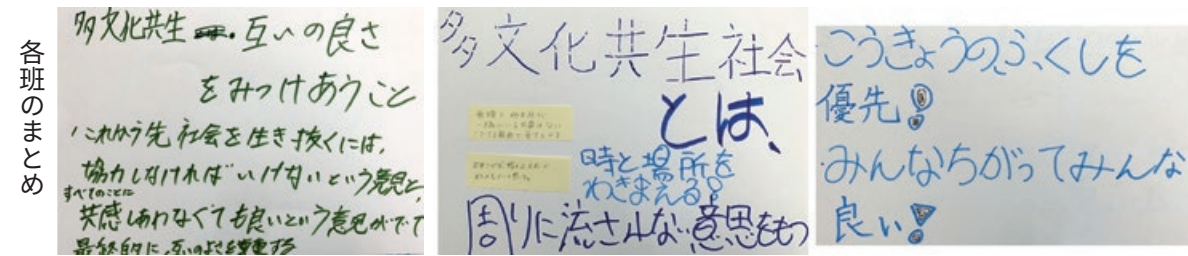 各班のまとめ
多文化共生 互いの良さ
をみつけあうこと
これから先、社会を生き抜くには、
協力しなければいけないという意見と、
すべてのことに
共感しあわなくても良いという意見がでて
最終的に、互いのよさを尊重する
多文化共生社会
とは、
時と場所を
わきまえる!
周りに流されない意思をもつ
こうきょうのふくしを
優先!
みんなちがってみんな
良い!